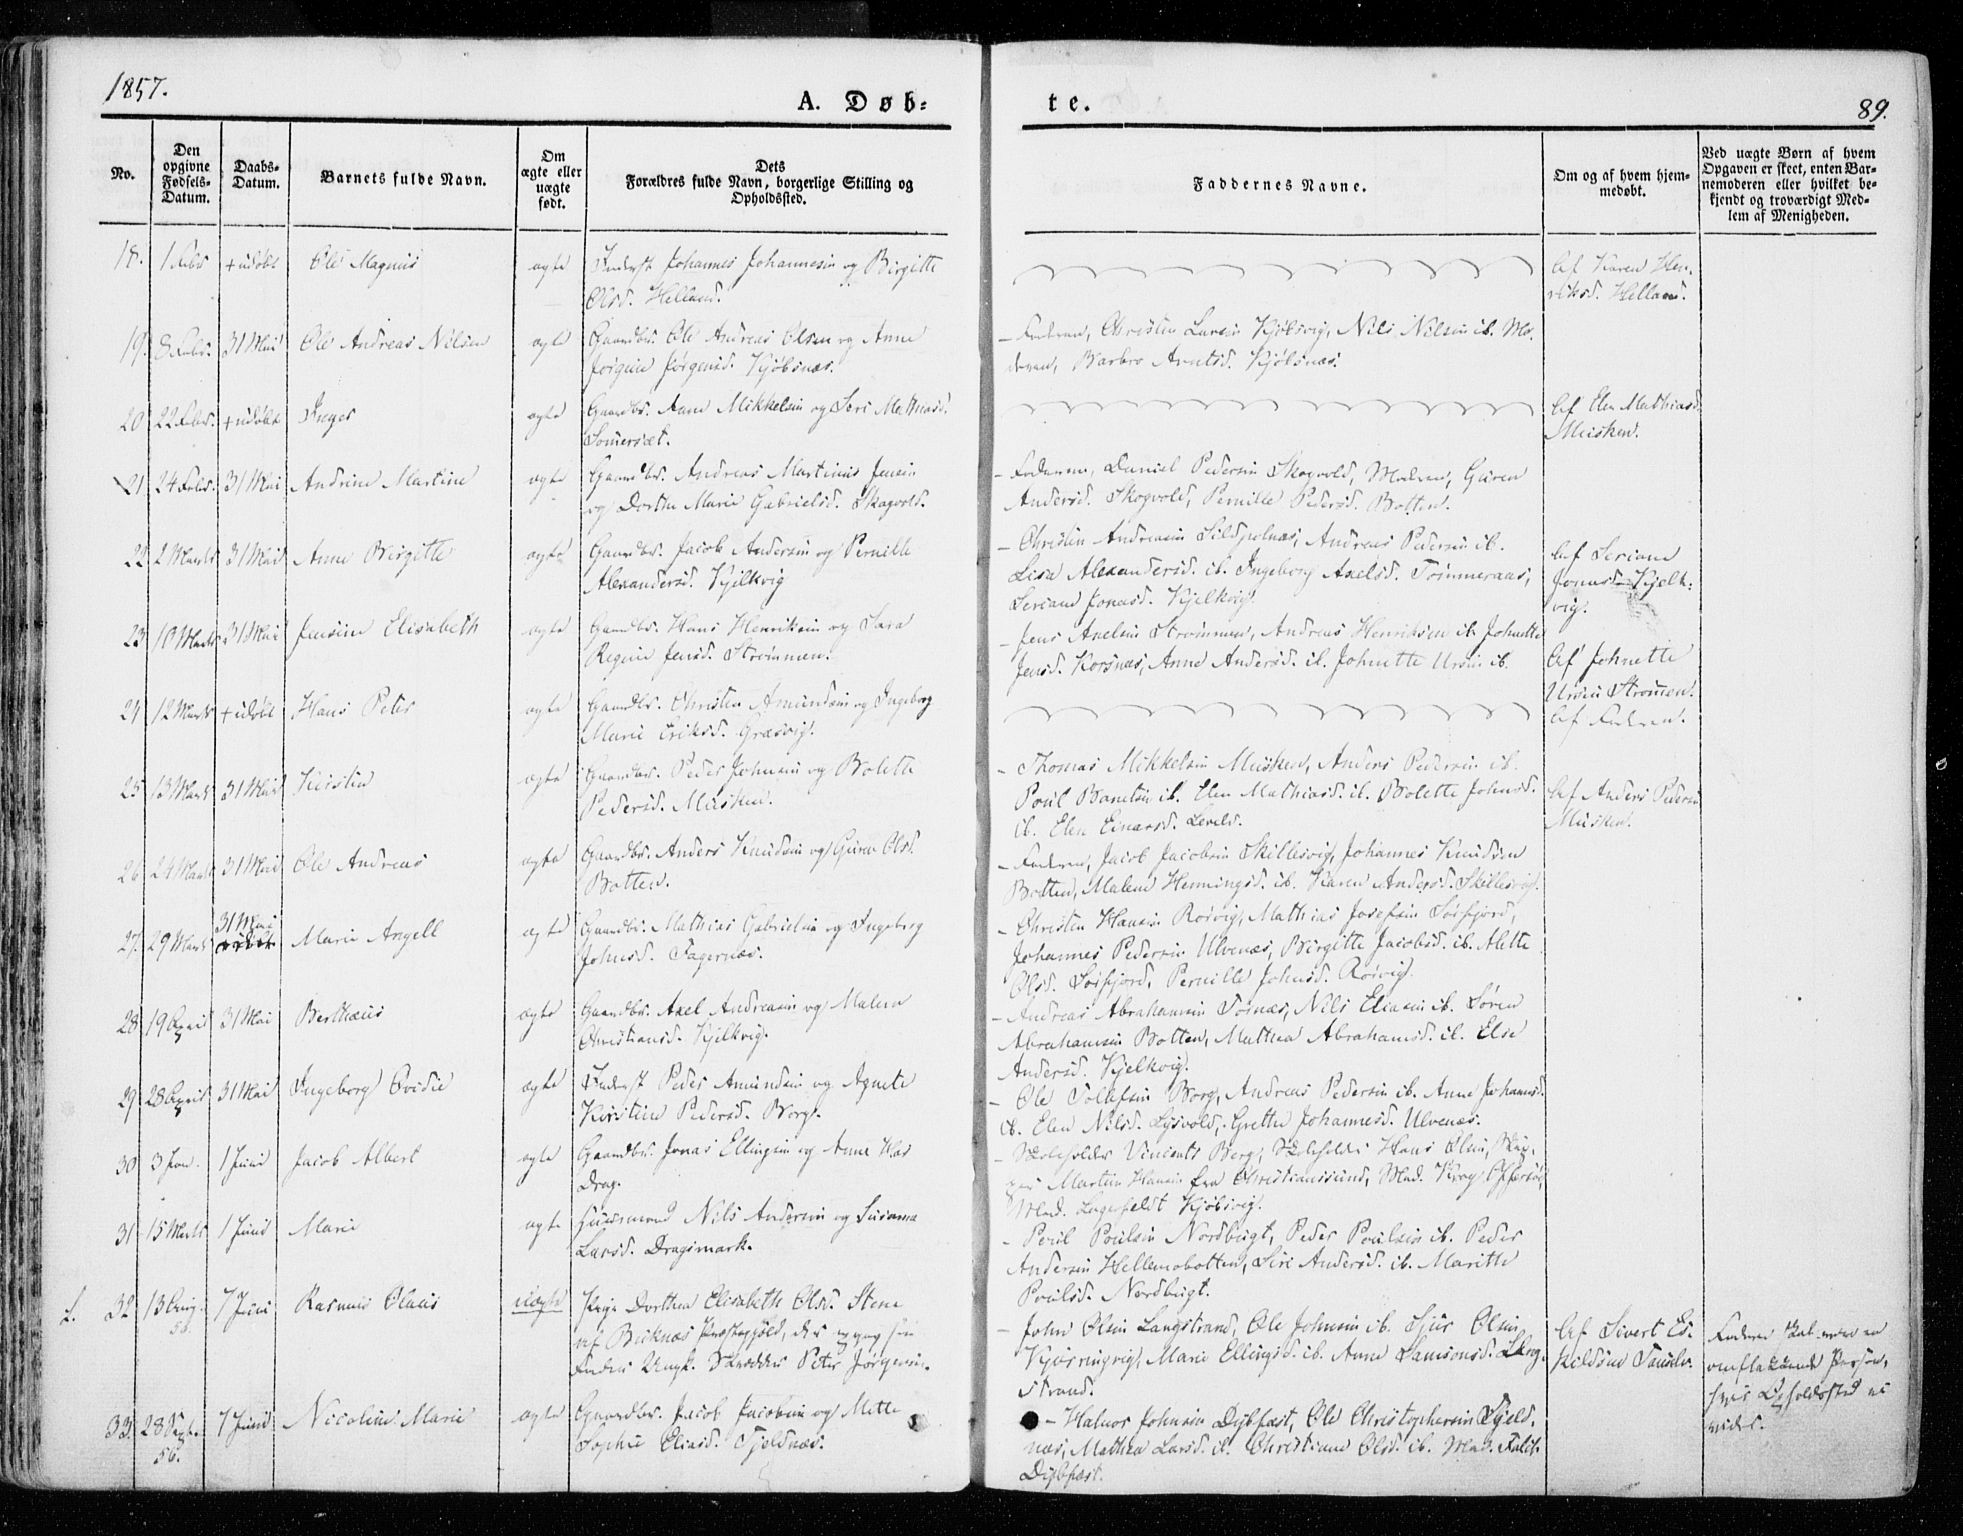 1857.
A. Døb=
te.
89.
No.
Den
opgivne
Fødsels-
Datum.
Daabs-
Datum.
Barnets fulde Navn.
Om
ægte eller
uægte
født.
Dets
Forældres fulde Navn, borgerlige Stilling og
Opholdssted.
Faddernes Navne.
Om og af hvem hjem-
medøbt.
Ved uægte Børn af hvem
Opgaven er skeet, enten Bar-
nemoderen eller hvilket be-
kjendt og troværdigt Med-
lem af Menigheden.
18. 1 Febr + udøbt Ole Magnus ægte Inderst Johannes Johannesen og Birgitte
Olsd. Helland.
Af Karen Hen-
riksd. Helland.
19. 8 Febr. 31 Mai Ole Andreas Nilsen ægte Gaardbr. Ole Andreas Olsen og Anne
Jørgine Jørgensd. Kjøbsnæs.
- Faderen, Christen Larsen Kjøbsvig, Nils Nilsen ib. Mo-
deren, Barbro Arntsd. Kjøbsnæs.
20 22 Febr. + udøbt Inger ægte Gaardbr. Mikkelsen og Siri Mathiasd.
Sommersæt.
Af Elen Mathiasd.
Musken.
21 24 Febr. 31 Mai Andrine Martine ægte Gaardbr. Andreas Martinus Jensen
og Dorthe Marie Gabrielsd. Skogvold.
- Faderen, Daniel Pedersen Skogvold, Moderen, Guren
Andersd. Skogvold, Pernille Pedersd. Botten.
22 2 Marts 31 Mai Anne Birgitte ægte Gaardbr. Jacob Andersen og Pernille
Alexandersd. Kjelkvig
- Christen Andreasen Sildpolnæs, Andreas Pedersen ib.
Lisa Alexandersd. ib. Ingeborg Axelsd. Tømmeraas,
Seriane Jonasd. Kjelkvig.
Af Seriane
Jonasd. Kjelk-
vig.
23 10 Marts 31 Mai Jensine Elisabeth ægte Gaardbr. Hans Henriksen og Sara
Regine Jensd. Strømmen.
- Jens Axelsen Strømmen, Andreas Henriksen ib. Johnette
Jensd. Korsnæs, Anne Andersd. ib. Johnette Ursin ib.
Af Johnette
Ursin Strømen.
24 12 Marts + udøbt Hans Peter ægte Gaardbr. Christen Amundsen og Ingeborg
Marie Eriksd. Græsvig.
Af Faderen.
25 13 Marts 31 Mai Kirstin ægte Gaardbr. Peder Johnsen og Bolette
Pedersd. Musken.
- Thomas Mikkelsen Musken, Anders Pedersen ib.
Poul Baretsen ib. Elen Mathiasd. ib. Bolette Johnsd.
ib. Elen Einarsd.
Af Anders Pedersen
Musken.
26 24 Marts 31 Mai Ole Andreas ægte Gaardbr. Anders Knudsen og Guren Olsd.
Botten.
- Faderen, Jacob Jacobsen Skillesvig, Johannes Knudsen
Botten, Malene Henningsd. ib. Karen Andersd. Skillesvig.
27 29 Marts 31 Mai Marie Angell ægte Gaardbr. Mathias Gabrielsen og Ingeborg
Johnsd. Fagernæs.
- Christen Hansen Rørvig, Mathias Josefsen Sørfjord,
Johannes Pedersen Ulvenæs, Birgitte Jacobsd. ib. Alette
Olsd. Sørfjord, Pernille Johnsd. Rørvig.
28 19 April 31 Mai Berthæus ægte Gaardbr. Axel Andreasen og Malene
Christiansd. Kjelkvig.
- Andreas Abrahamsen Tørnæs, Nils Eliasen ib. Søren
Abrahamsen Botten, Mathea Abrahamsd. ib. Else
Andersd. Kjelkvig.
29 28 April 31 Mai Ingeborg Ovidie ægte Inderst Peder Amundsen og Agnete
Kirstine Pedersd. Borg.
- Ole Tollefsen Borg, Andreas Pedersen ib. Anne Johannesd.
ib. Elen Nilsd. Lysvold, Grethe Johannesd. Ulvenæs.
30 3 Jan. 1 Juni Jacob Albert ægte Gaardbr. Jonas Ellingsen og Anne
Drag.
- Skoleholder Vincents Berg, Skoleholder Hans Olsen,
Martin Hansen fra Christianssund, Mad. Krog Offersø,
Mad. Lagefeldt Kjøbsvig.
31 15 Marts 1 Juni Marie ægte Huusmand Nils Andersen og Susanna
Larsd. Dragsmark.
- Poul Poulsen Nordbugt, Peder Poulsen ib. Peder
Andersen Hellemobotten, Siri Andersd. ib. Marithe
Poulsd. Nordbugt.
1. 32 13 Aug. 56. 7 Juni Rasmus Olaus uægte Pige Dorthea Elisabeth Olsd. Stene
af Buknæs Præstegjeld, der opgav som
Fader Ungk. Skrædder Peter Jørgensen.
- John Olsen Langstrand, Ole Johnsen ib. Sjur Olsen
Kjørringvig, Marie Ellingsd. ib. Anne Samsonsd. Lang-
strand.
Af Sivert Es-
kildsen
Faderen skal være en
omflakkende Person,
hvis Opholdssted ei
vides.
33. 28 Sept. 56. 7 Juni Nicoline Marie ægte Gaardbr. Jacob Jacobsen og Mette
Sophie Eliasd. Tjeldnæs.
- Halvor Johnsen Dybfæst, Ole Christophersen Tjeld-
næs, Mathea Larsd. ib. Christiane Olsd. ib. Mad. Falch
Dybfæst.